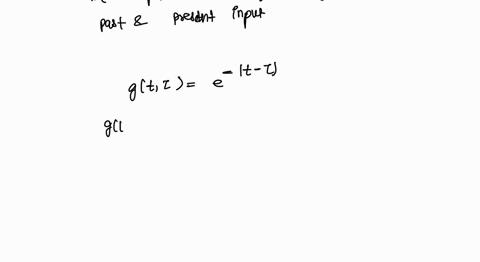 past & present input
g(t, τ) = e^{-|t-τ|}
g(t